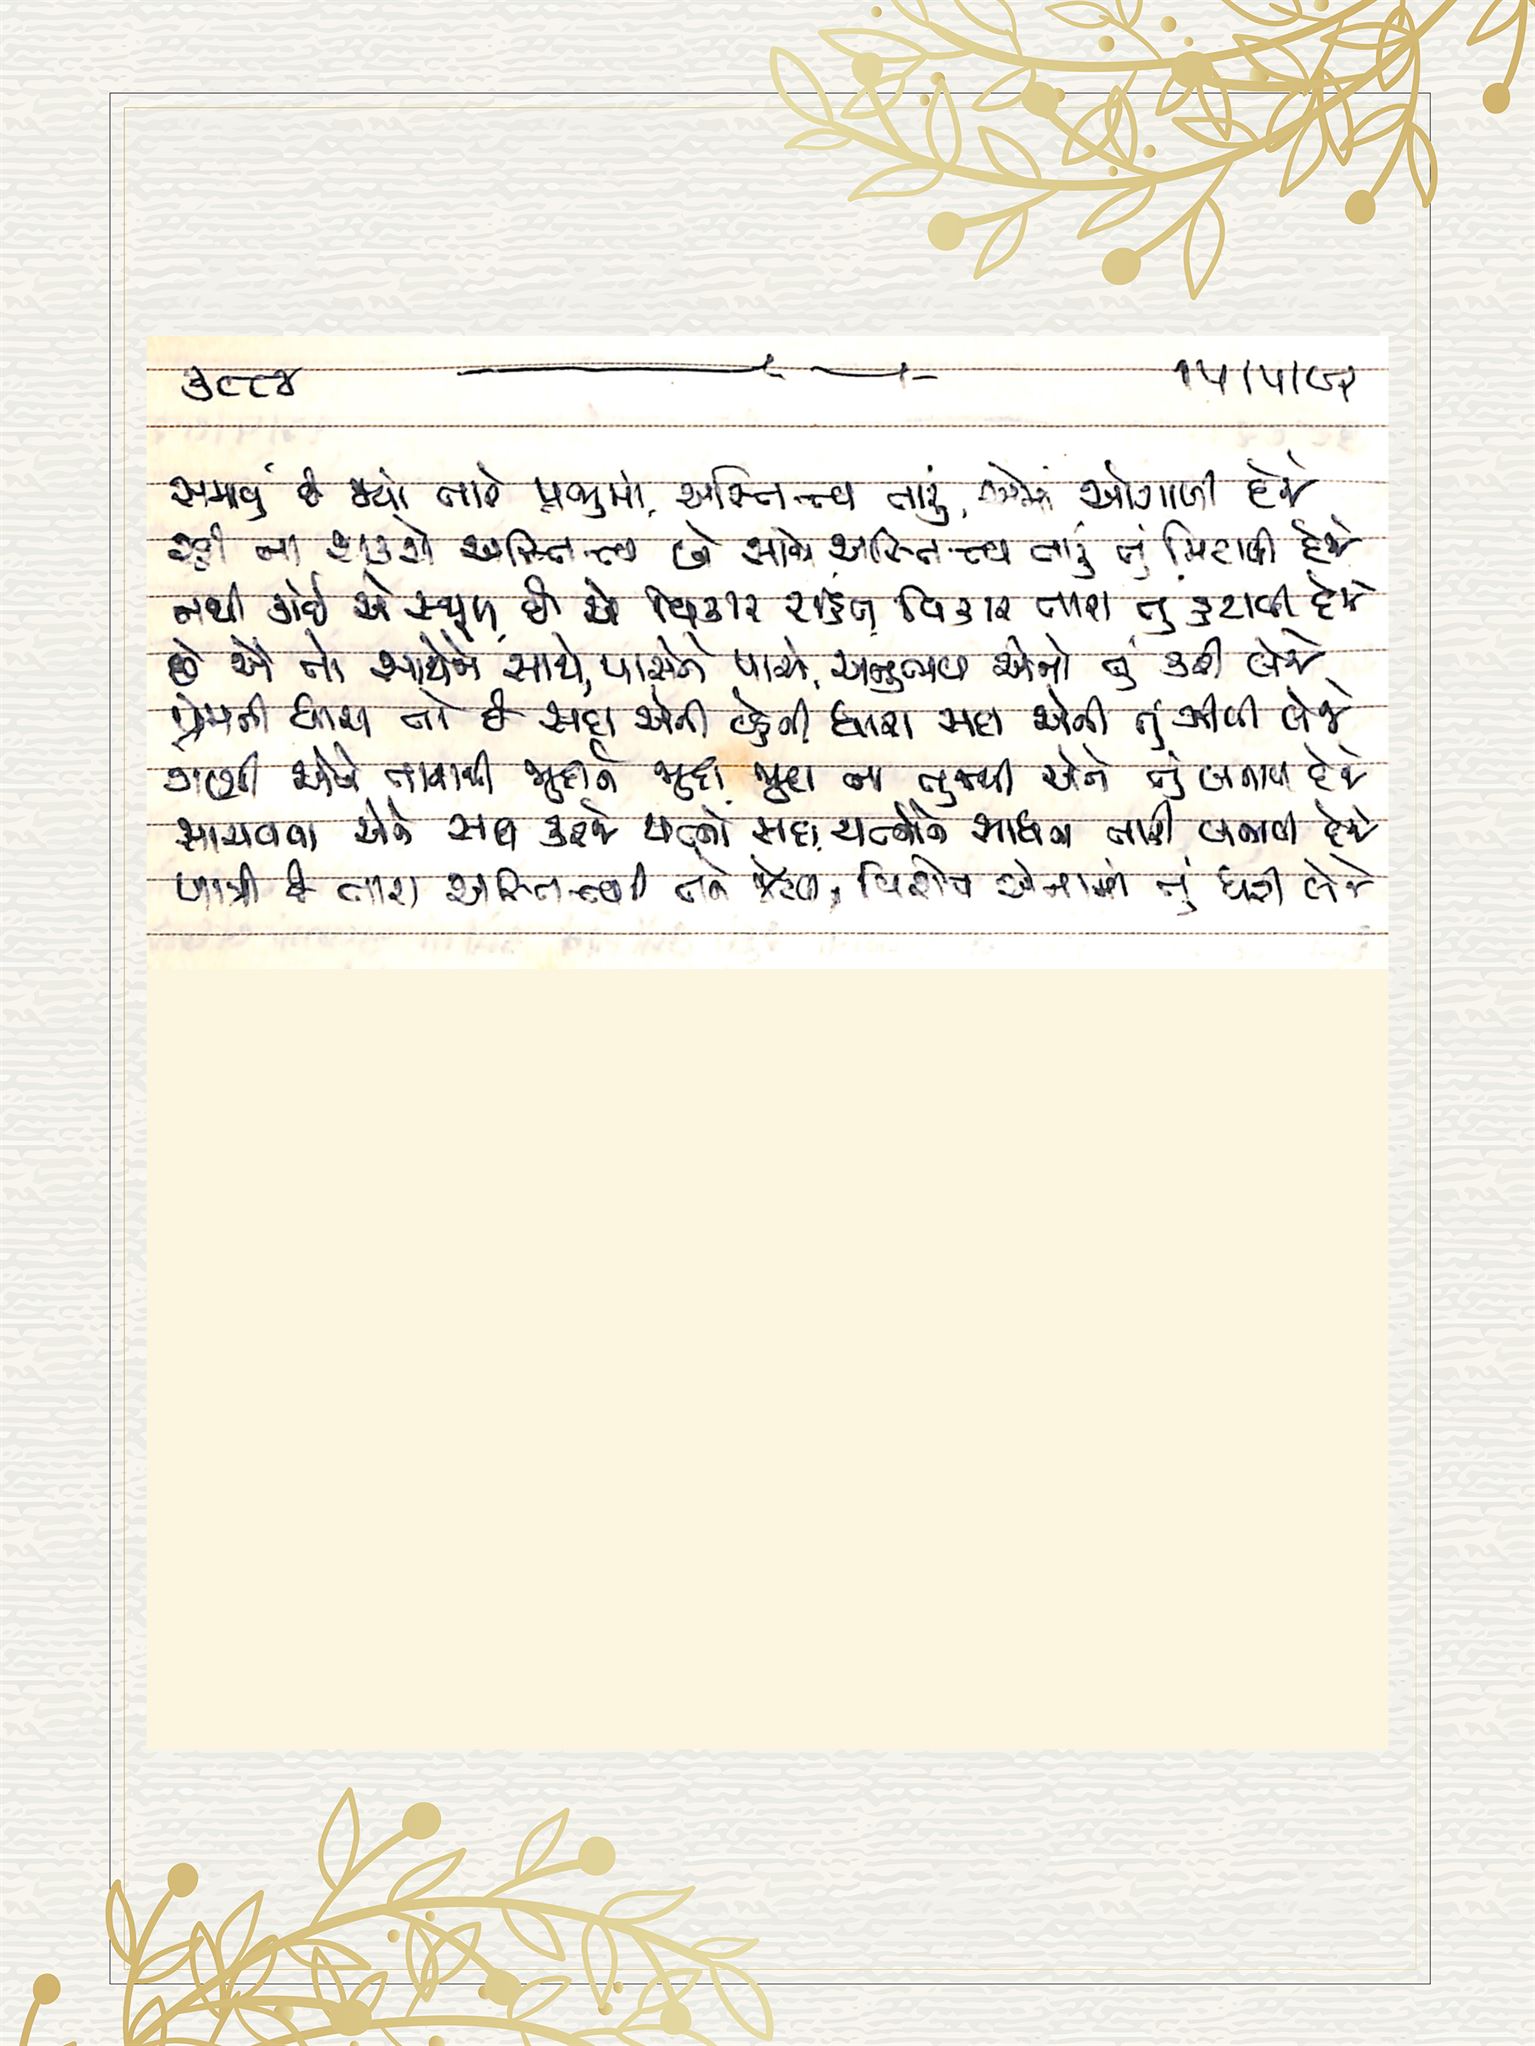 ૩૮૮૪ ૧૫/૫/૯૨
સમાવું છે જ્યાં તારે પ્રભુમાં, અસ્તિત્વ તારું, એમાં ઓગાળી દેજે
રહી ના શકશે અસ્તિત્વ બે સાથે, અસ્તિત્વ તારું તું મિટાવી દેજે
નથી કોઈ એ સ્થૂળ, છે એ વિકાર રહિત, વિકાર તારા તું હટાવી દેજે
છે એ તો સાથેને સાથે, પાસેને પાસે, અનુભવ એનો તું કરી લેજે
પ્રેમની ધારા તો છે સદા એની વહેતી, ધારા સદા એની તું ઝીલી લેજે
ગણી એને તારાથી જુદાને જુદા, જુદા ના તુજથી એને તું બનાવી દેજે
સાચવવા એને સદા કરજે યત્નો સદા, યત્નોને સાધના તારી બનાવી દેજે
ખાત્રી છે તારા અસ્તિત્વની તને જેટલી, વિશેષ એનામાં તું ધરી લેજે